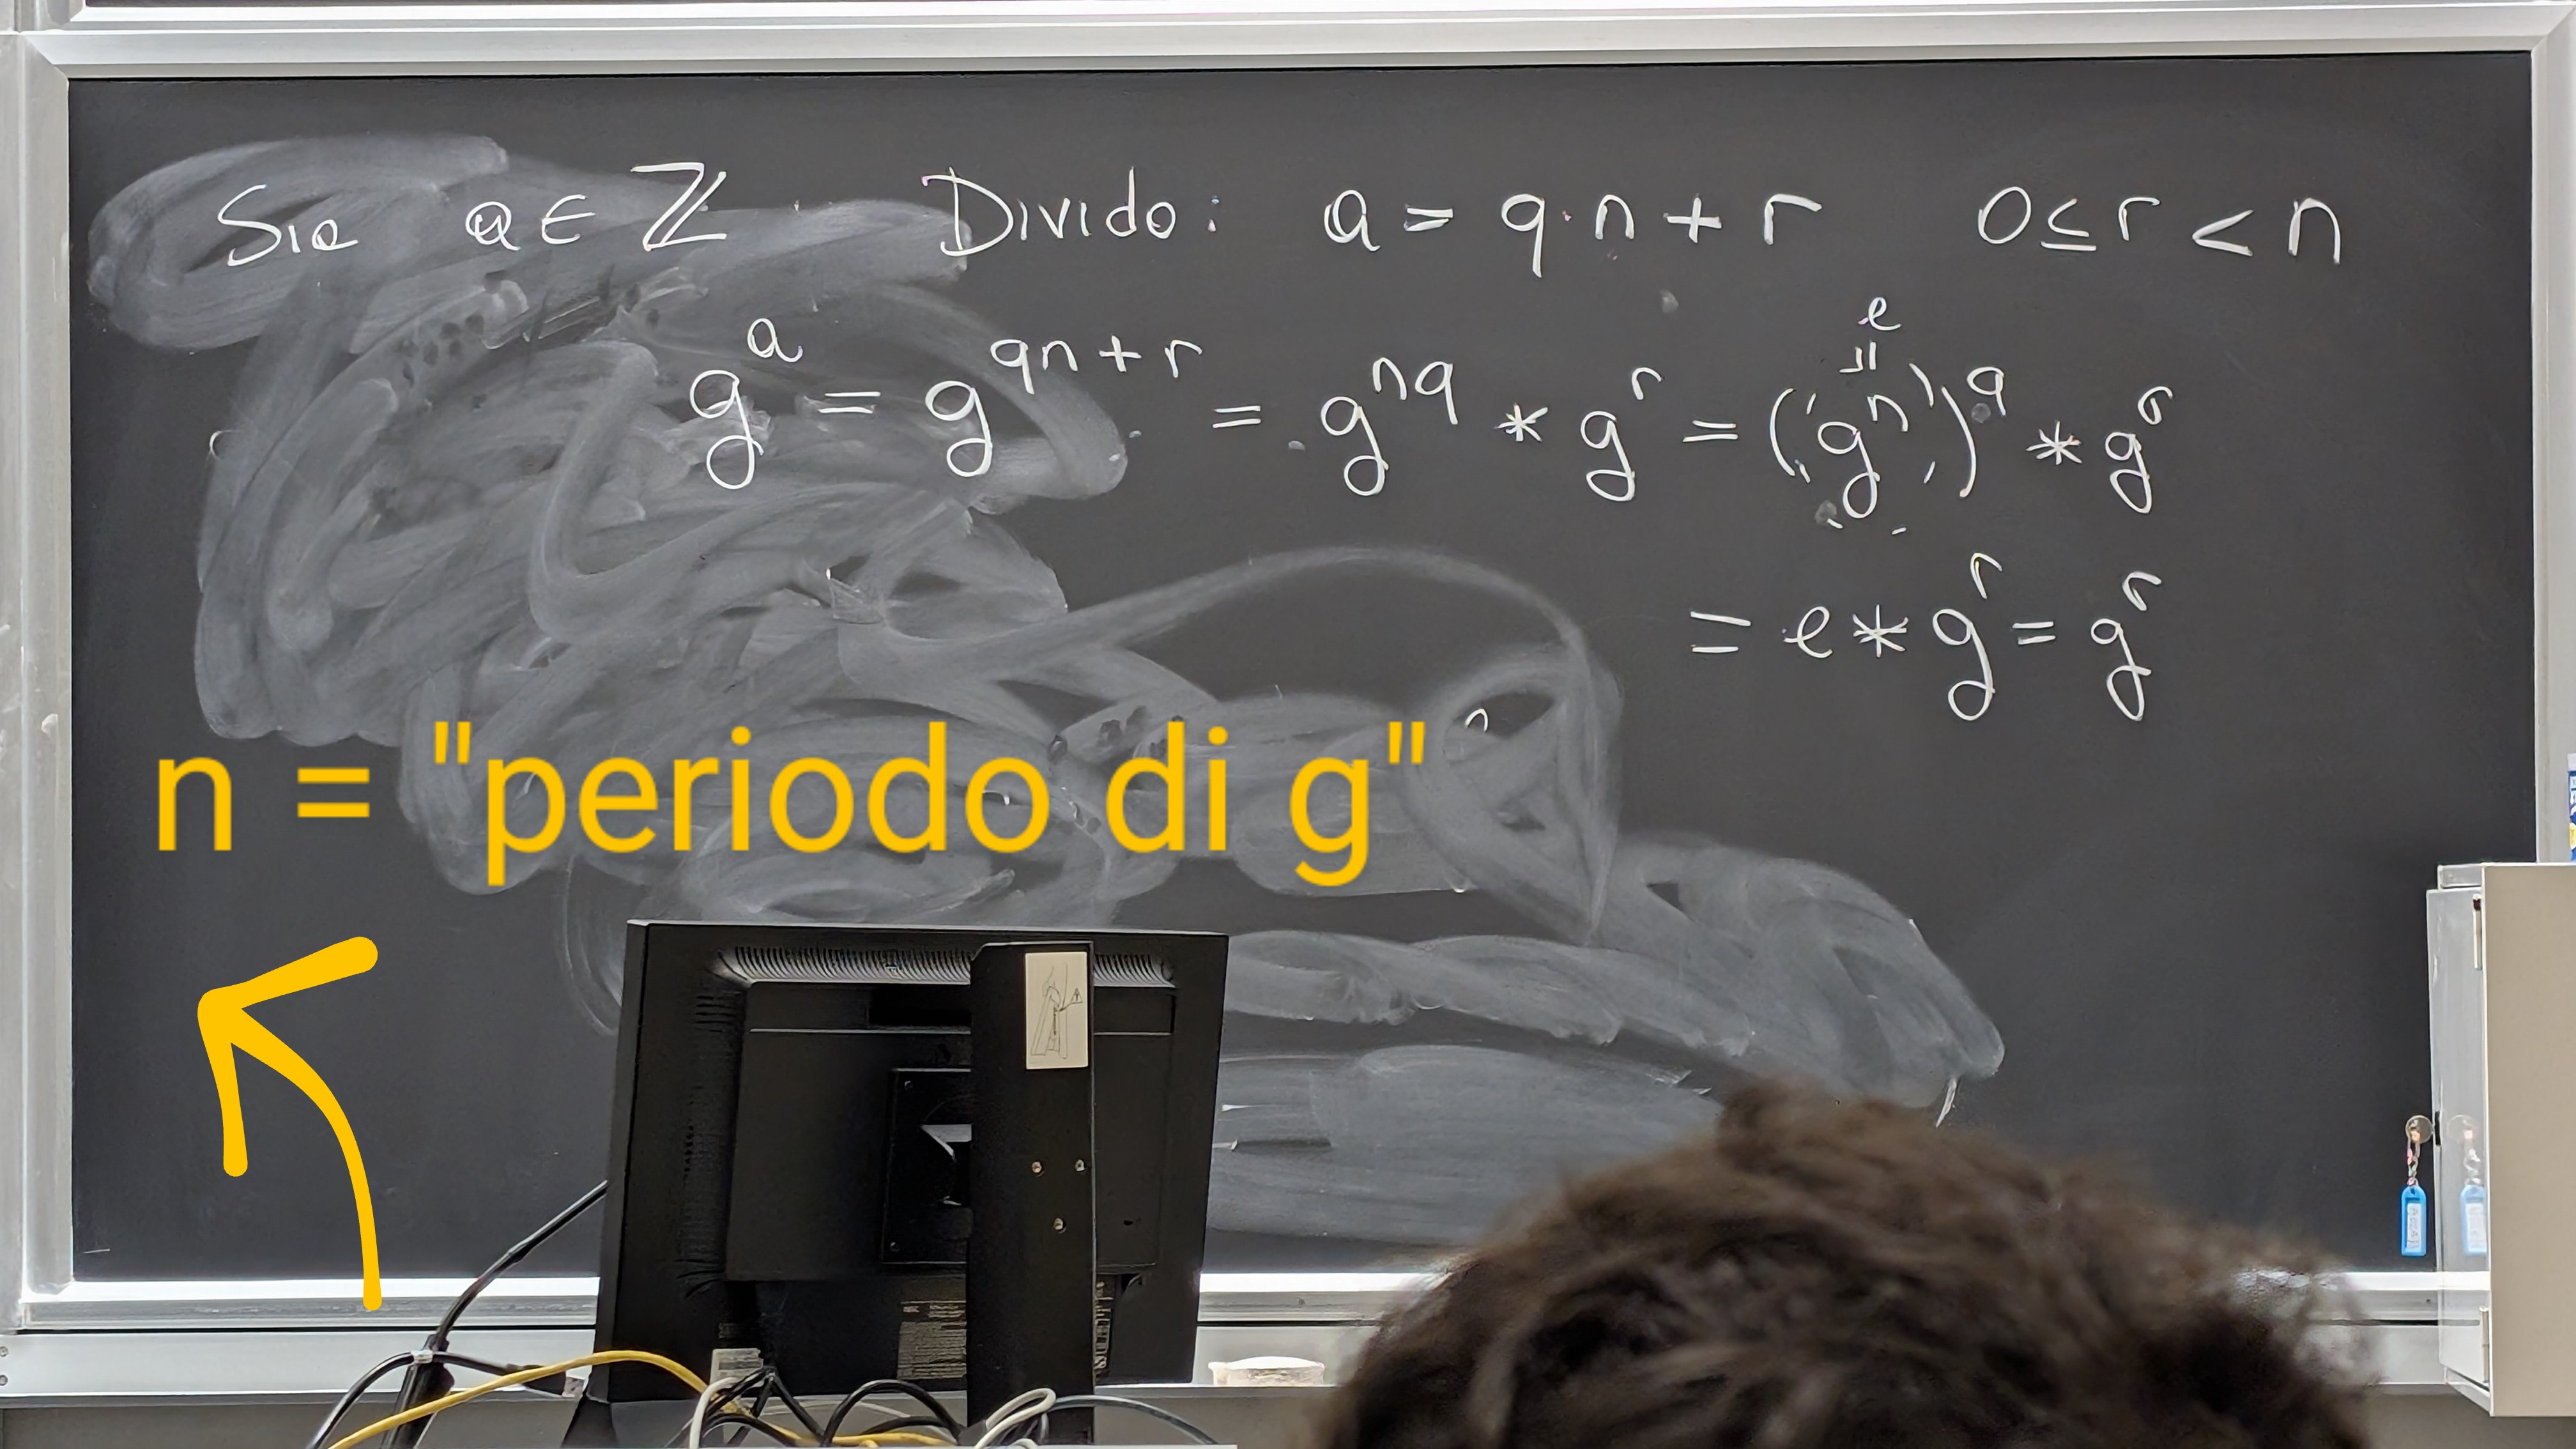 Sia a ∈ ℤ Divido: a = q·n + r 0 ≤ r < n
e
=
g^a = g^{qn+r} = g^{nq} * g^r = (g^n)^q * g^r
= e * g^r = g^r
n = "periodo di g"